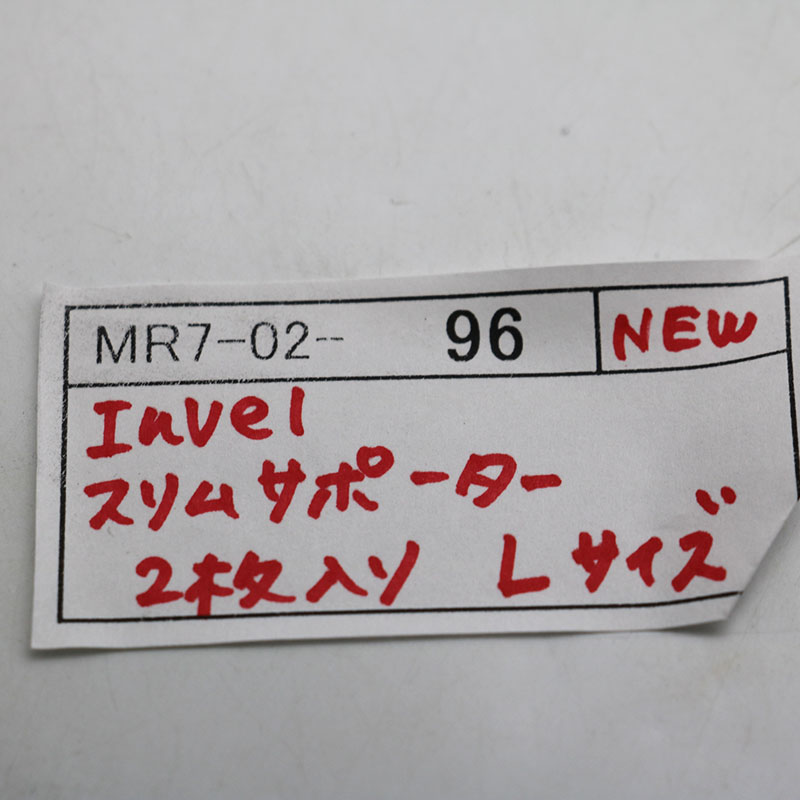 MR7-02-- 96 NEW
Invel
スリムサポーター
2枚入り Lサイズ